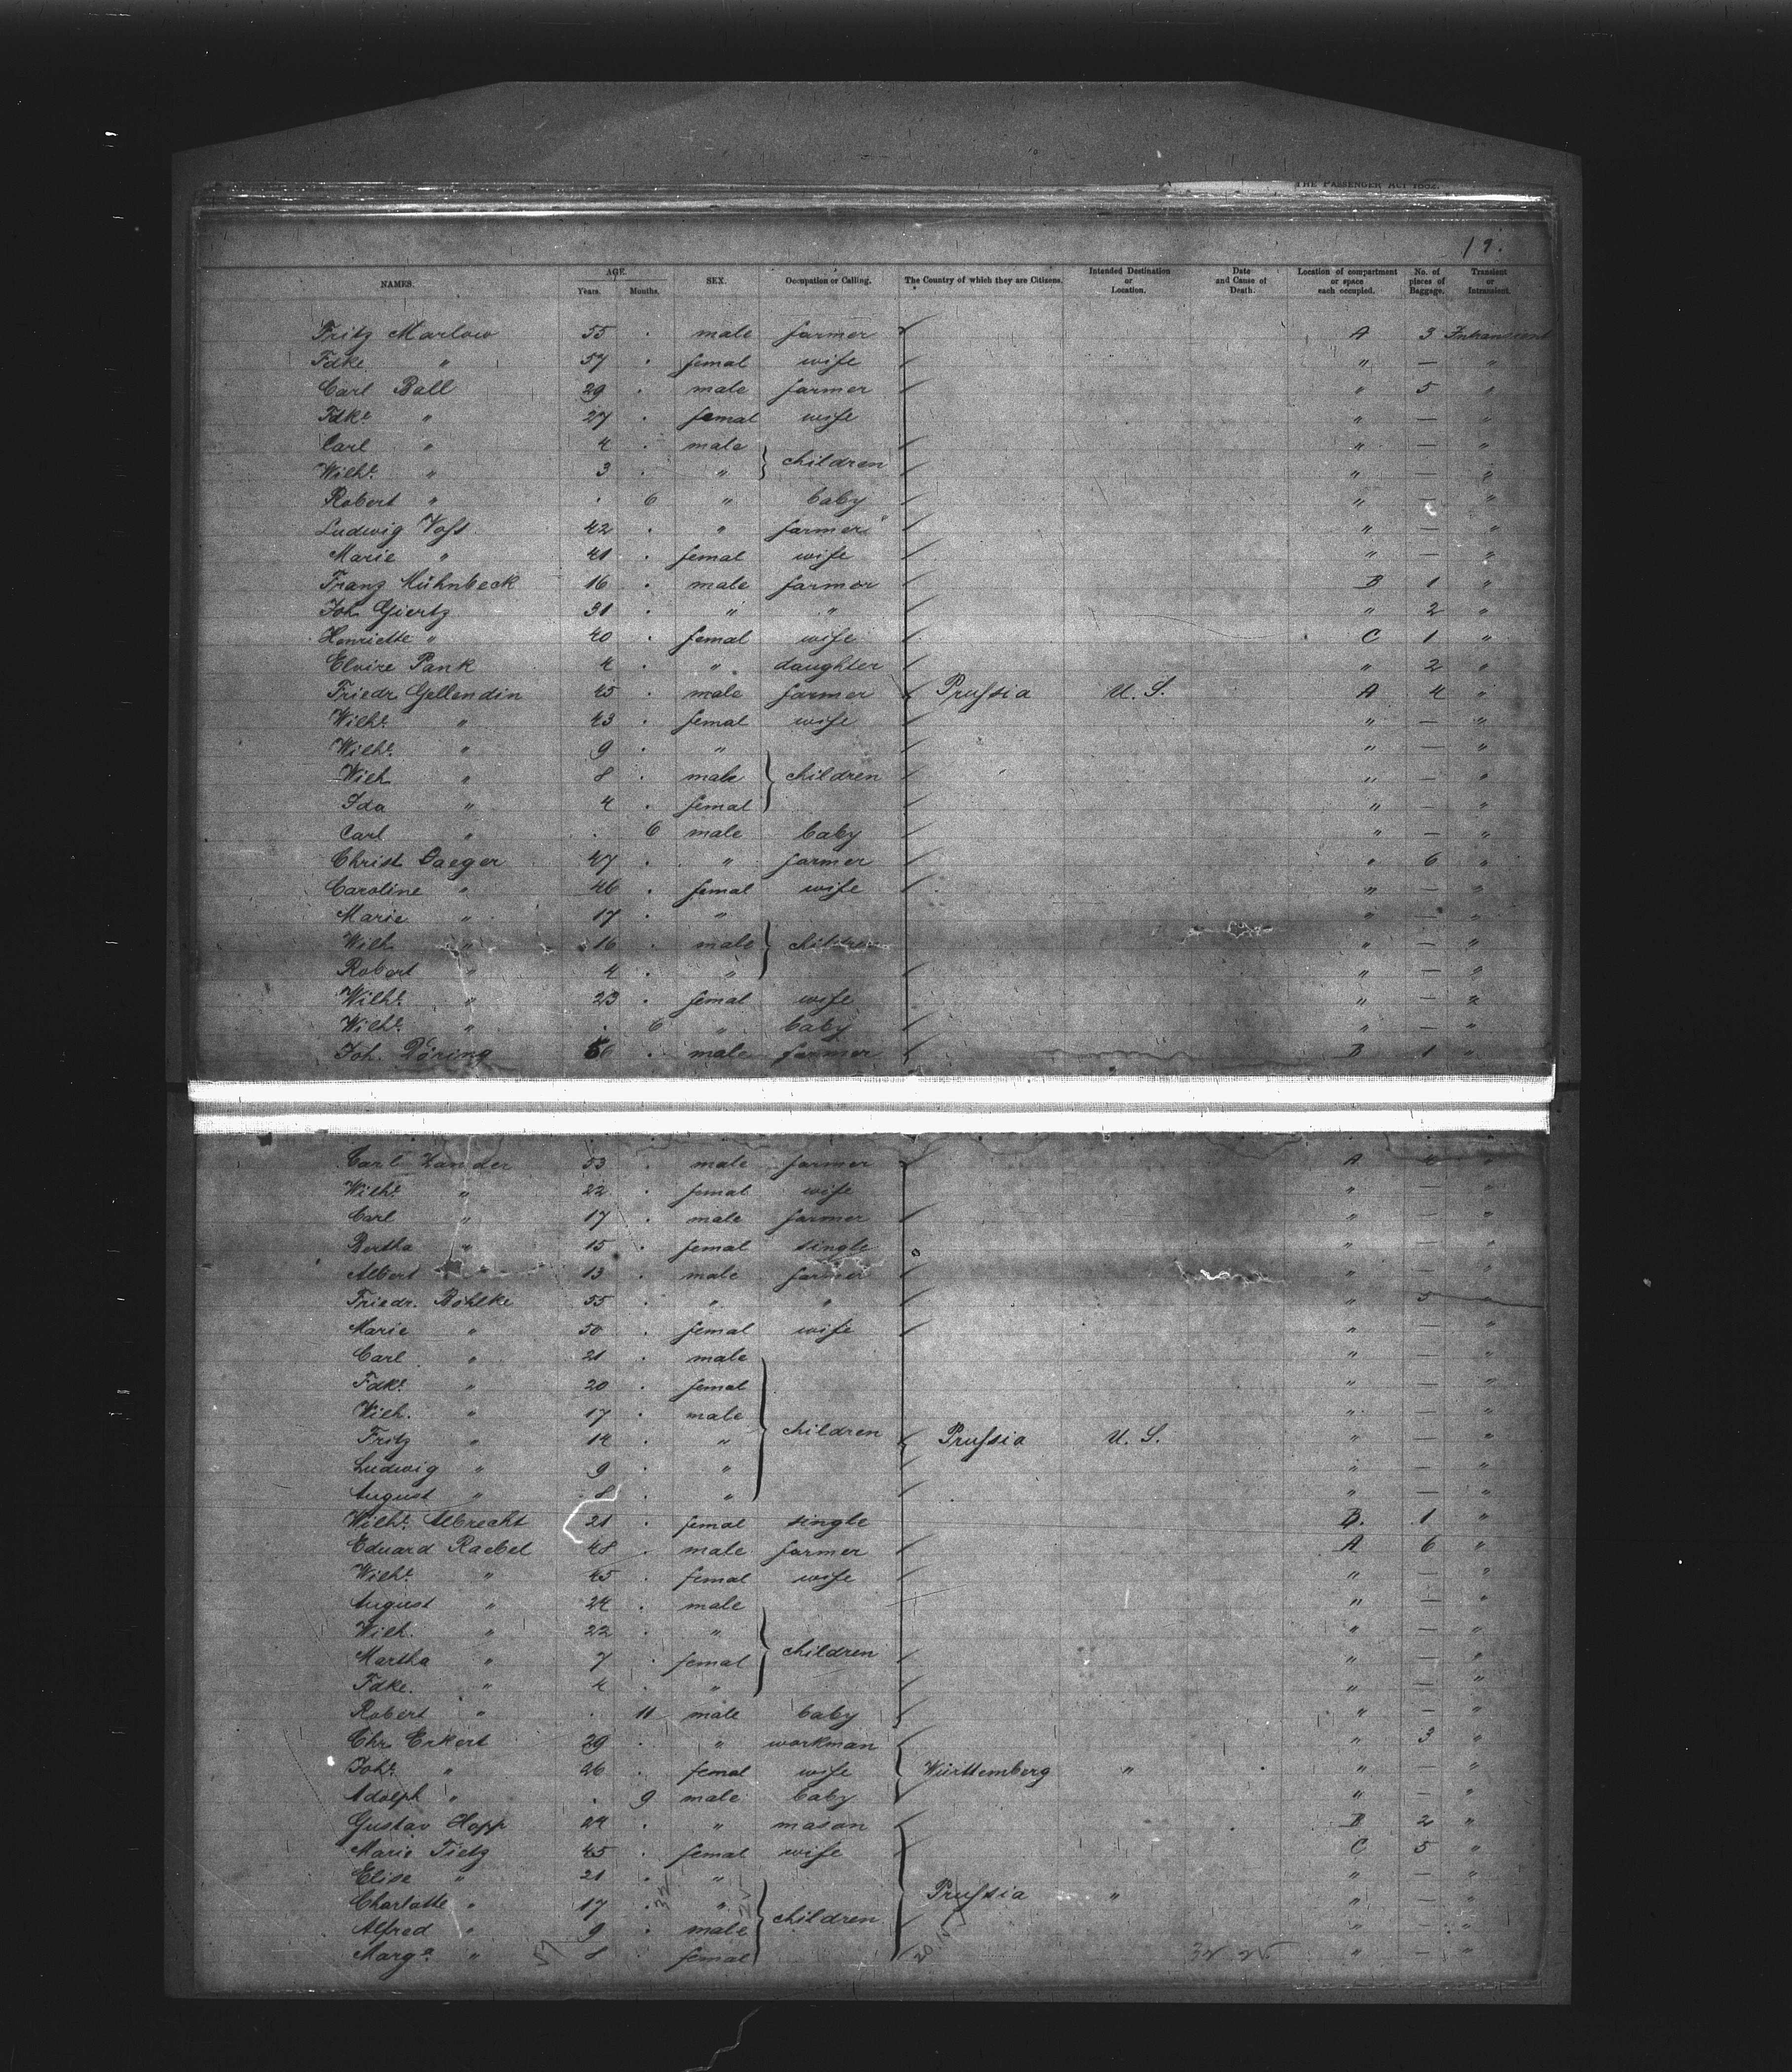 THE PASSENGER ACT 1882.
19.
NAMES. AGE. Years. Months. SEX. Occupation or Calling. The Country of which they are Citizens. Intended Destination or Location. Date and Cause of Death. Location of compartment or space each occupied. No. of pieces of Baggage. Transient or Intransient.
Fritz Marlow 55 . male farmer A 3 Intransient
Fdke. " 57 . femal wife " — "
Carl Ball 29 . male farmer " 5 "
Fdke. " 27 . femal wife " — "
Carl " 4 . male " — "
Wilhe. " 3 . " children " — "
Robert " . 6 " baby " — "
Ludwig Voſs 42 . " farmer " — "
Marie " 41 . femal wife " — "
Franz Mühnbeck 16 . male farmer B 1 "
Joh. Giertz 31 . " " " 2 "
Henriette " 40 . femal wife C 1 "
Elvire Pank 4 . " daughter " 2 "
Friedr. Gellendin 45 . male farmer Pruſsia U. S. A 4 "
Wilhe. " 43 . femal wife " — "
Wilhe. " 9 . " " — "
Wilh. " 8 . male children " — "
Ida " 4 . femal " — "
Carl " . 6 male baby " — "
Christ. Daeger 47 . " farmer " 6 "
Caroline " 46 . femal wife " — "
Marie " 17 . " " — "
Wilh. " 16 . male children " — "
Robert " 4 . " " — "
Wilhe. " 23 . femal wife " — "
Wilhe. " . 6 " baby " — "
Joh. Döring 56 . male farmer B 1 "
Carl Zander 53 . male farmer A 4 "
Wilhe. " 22 . femal wife " — "
Carl " 17 . male farmer " — "
Bertha " 15 . femal single " — "
Albert " 13 . male farmer " — "
Friedr. Böhlke 55 . " " " 5 "
Marie " 50 . femal wife " — "
Carl " 21 . male " — "
Fdke. " 20 . femal " — "
Wilh. " 17 . male " — "
Fritz " 14 . " children Pruſsia U. S. " — "
Ludwig " 9 . " " — "
August " 8 . " " — "
Wilhe. Albrecht 21 . femal single B. 1 "
Eduard Raebel 48 . male farmer A 6 "
Wilhe. " 45 . femal wife " — "
August " 24 . male " — "
Wilh. " 22 . " " — "
Martha " 7 . femal children " — "
Fdke. " 4 . " " — "
Robert " . 11 male baby " — "
Chr. Erkert 29 . " workman " 3 "
Johe. " 26 . femal wife Württemberg " " — "
Adolph " . 9 male baby " — "
Gustav Hopp 24 . " mason B 2 "
Marie Tietz 45 . femal wife C 5 "
Elise " 21 . " " — "
Charlotte " 17 . " Pruſsia " " — "
Alfred " 9 . male children " — "
Marga. " 8 . femal " — "